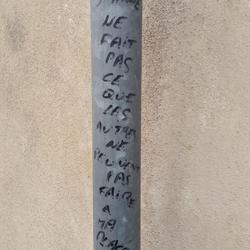 NE
FAIT
PAS
CE
QUE
LES
AUTRES
NE
PEUVENT
PAS
FAIRE
A
MA
PLACE